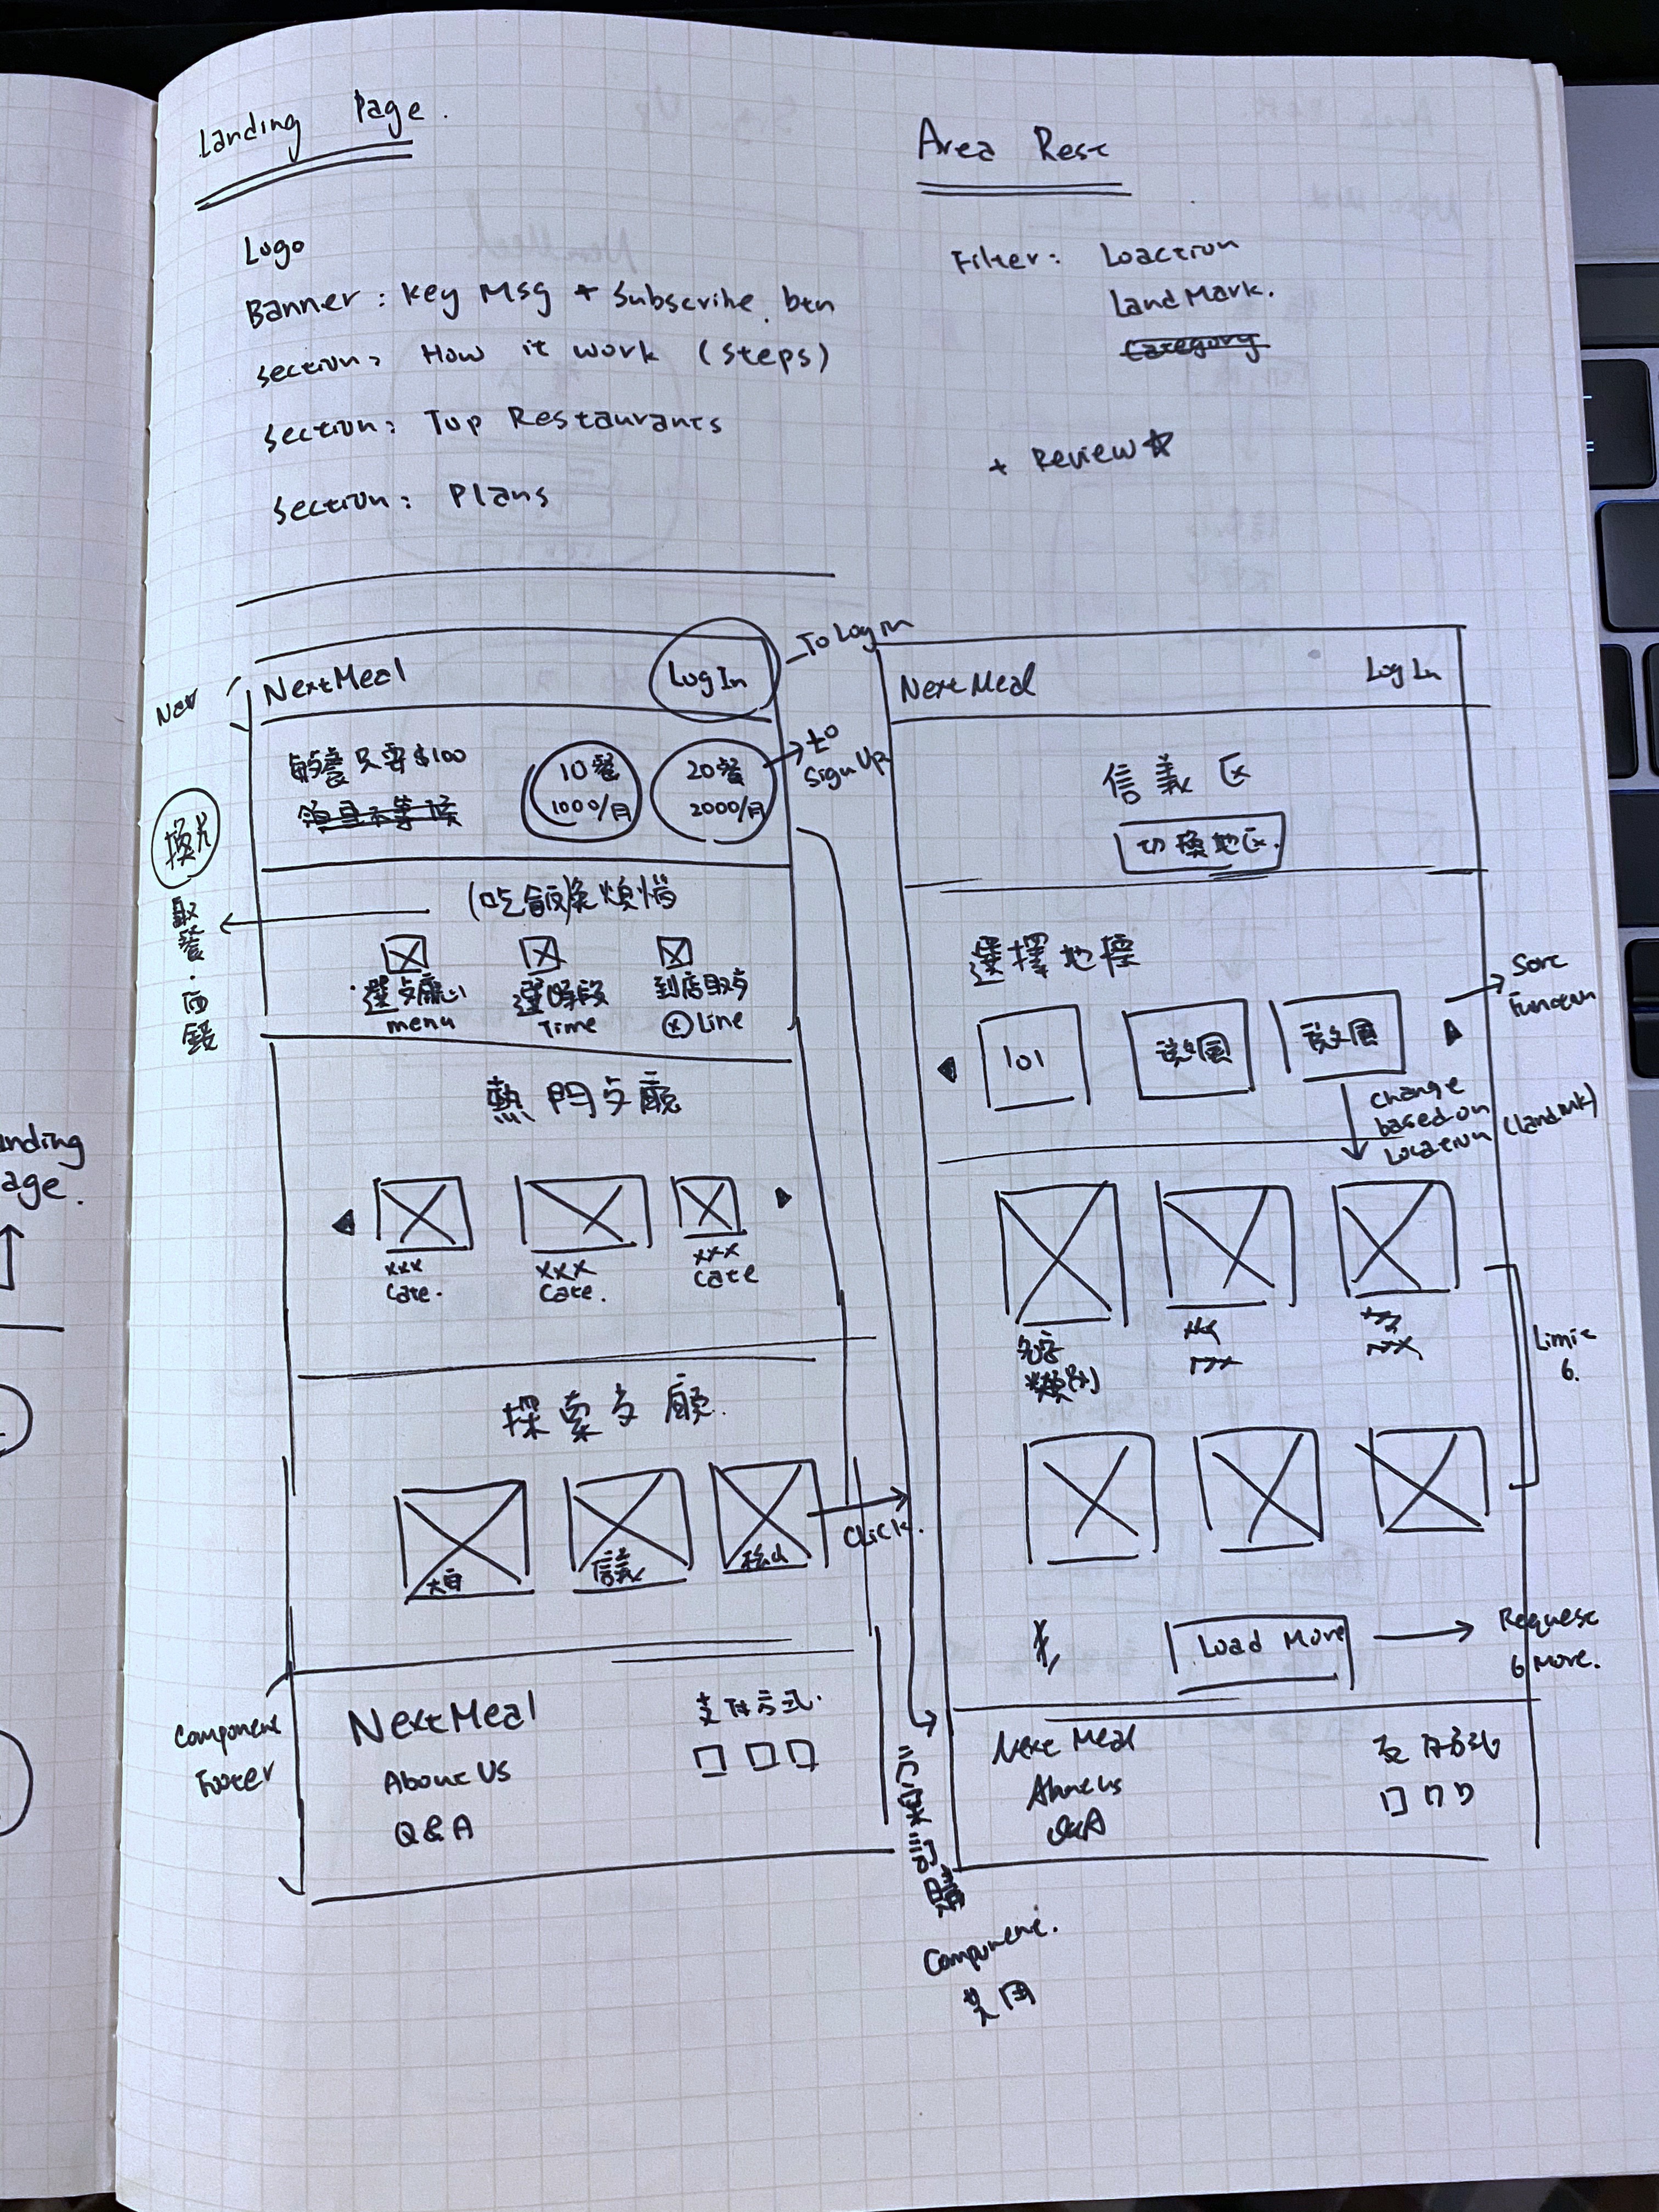 Landing Page.
Logo
Banner: Key Msg + Subscribe btn
Section: How it work (steps)
Section: Top Restaurants
Section: Plans
Area Rest
Filter: Loaction
LandMark.
Category
+ Review☆
Nav
NextMeal
Log In
To Log in
每餐只要$100
10餐
1000/月
20餐
2000/月
to Sign Up
(吃飯)免煩惱
選歺廳
menu
選時段
Time
到店取歺
Line
熱門歺廳
xxx
Cate.
xxx
Cate.
xxx
Cate
探索歺廳
大安
信義
松山
Click.
Component
Footer
NextMeal
支付方式
About Us
Q&A
anding
age.
Next Meal
Log In
信義區
切換地區
選擇地標
101
Sort
Function
Change
based on
Location (landmk)
名字
類別
Limit
6.
Load More
Request
6 More.
Next Meal
About us
Q&A
支付方式
Component.